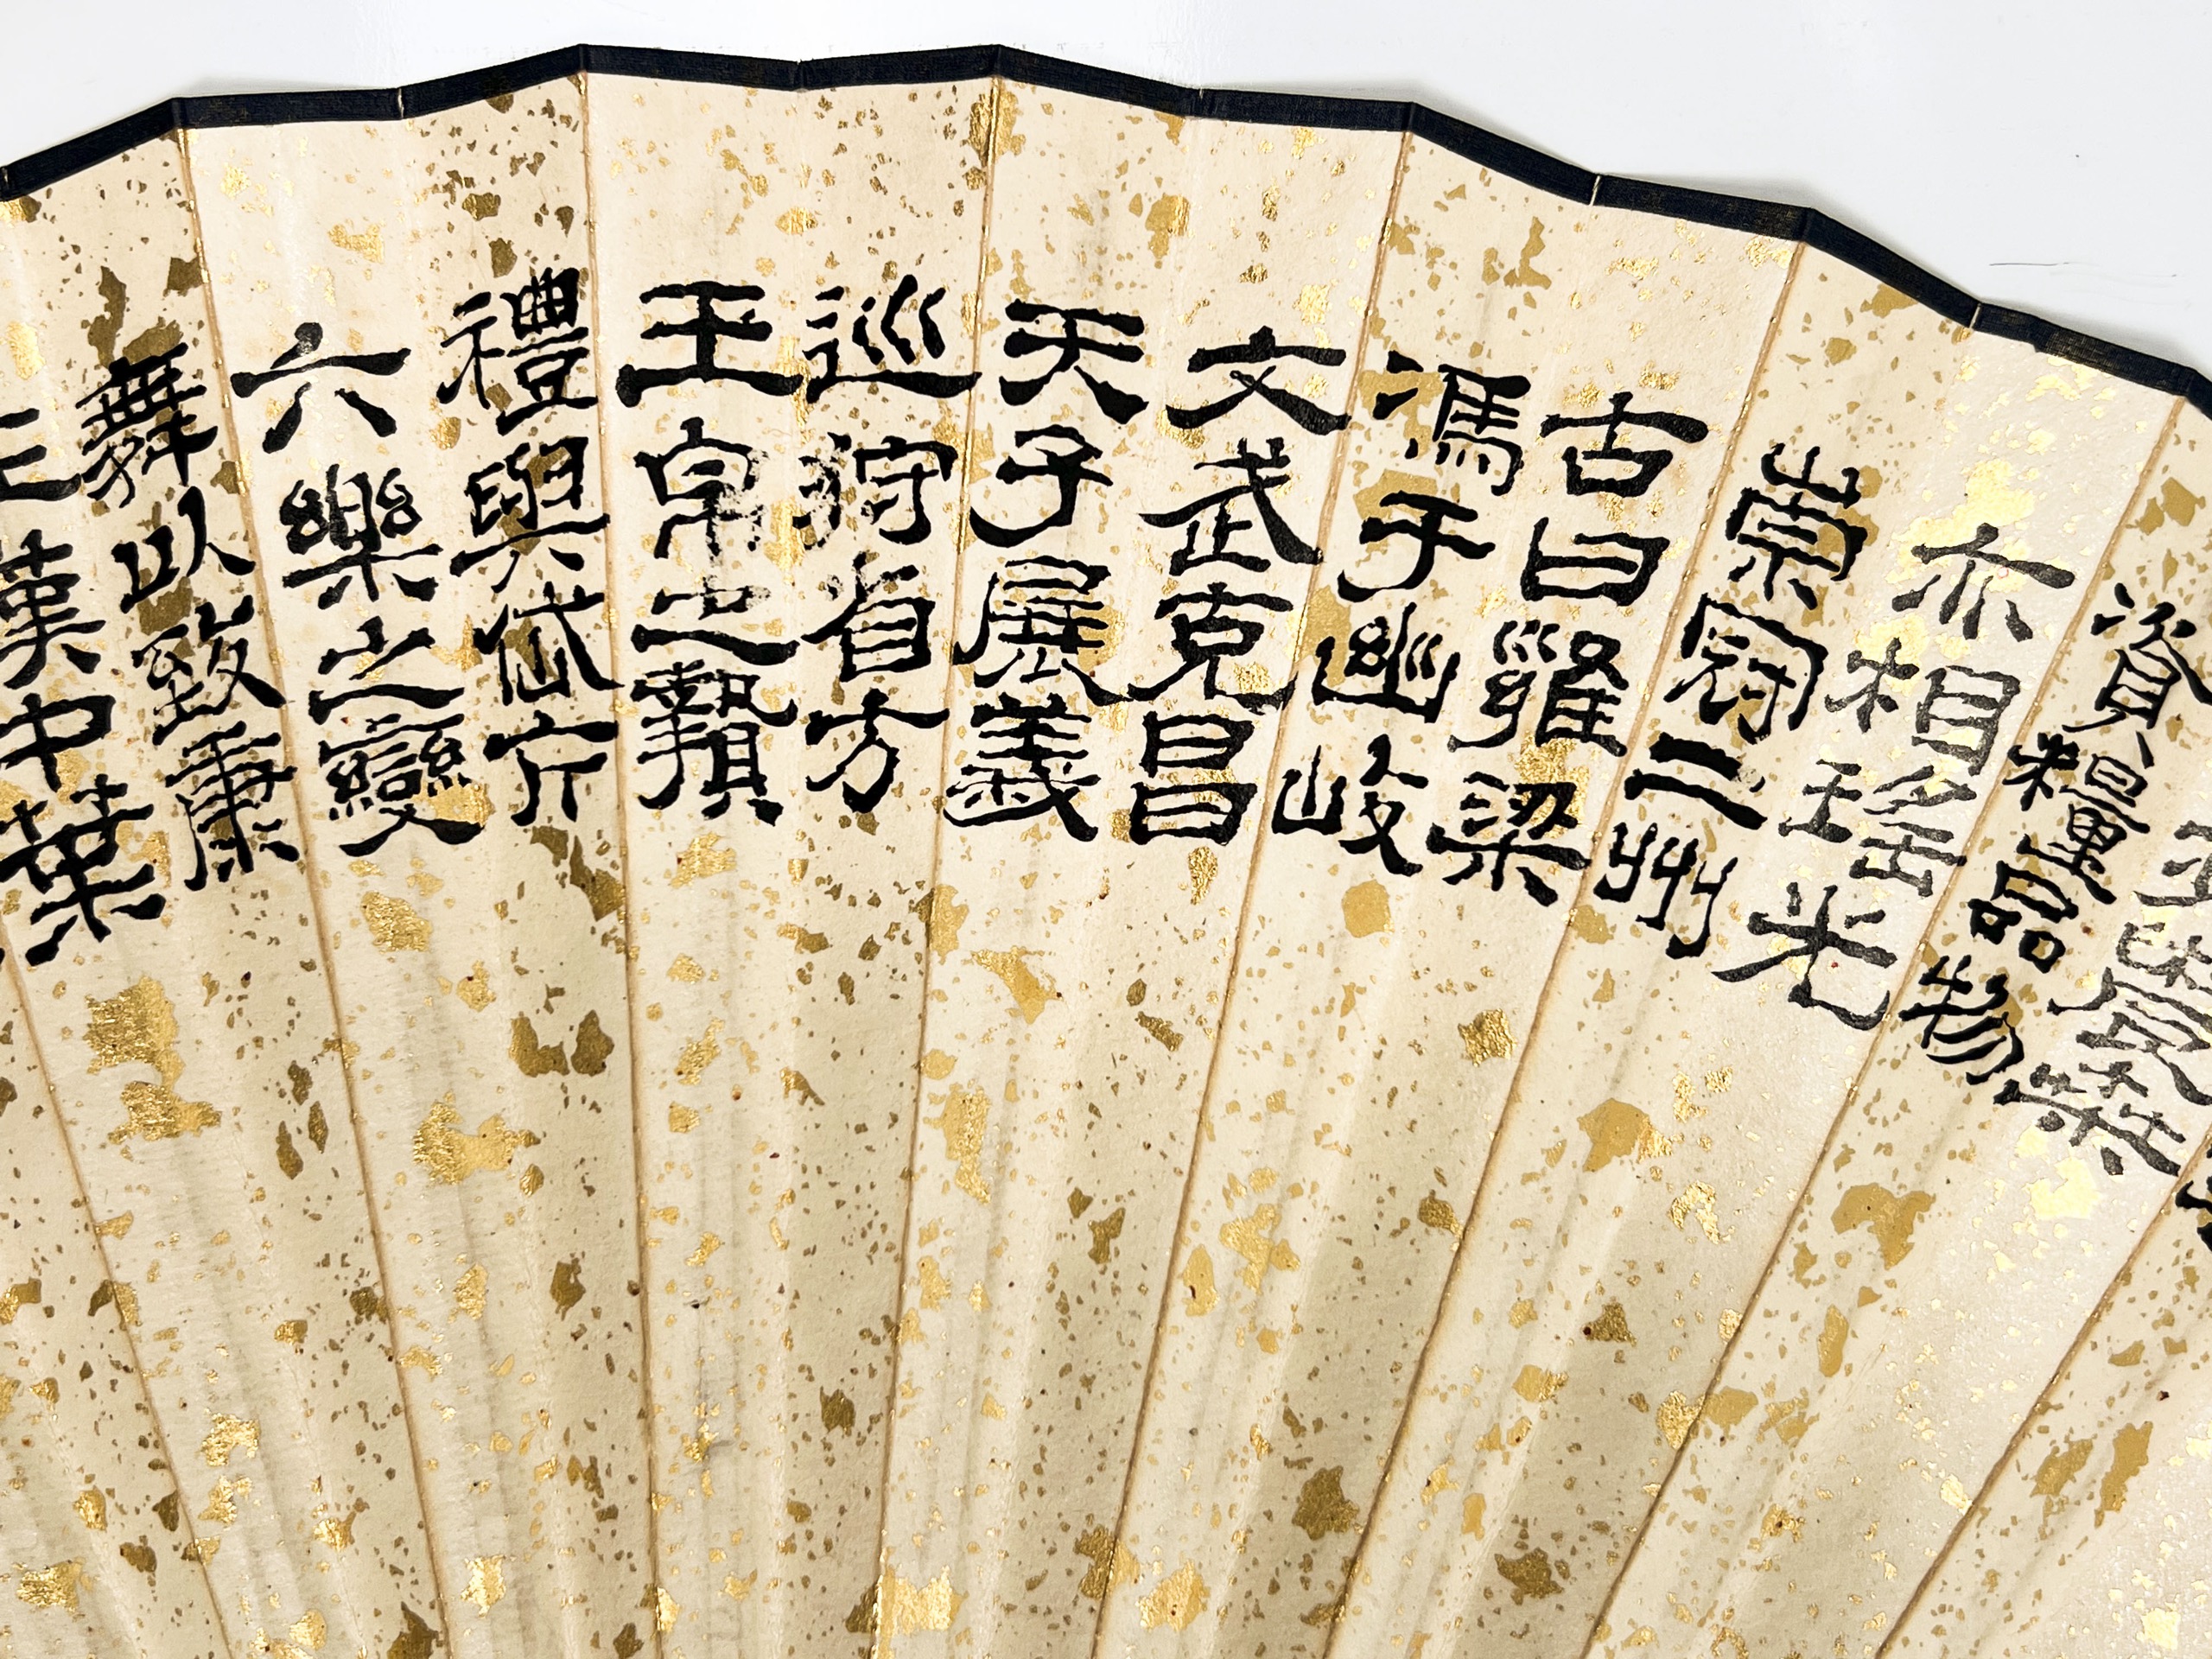 農桑
資糧品物
亦相瑤光
崇冠二州
古曰雍梁
馮于豳岐
文武克昌
天子展義
巡狩省方
玉帛之贄
禮與岱亢
六樂之變
舞以致康
漢中葉